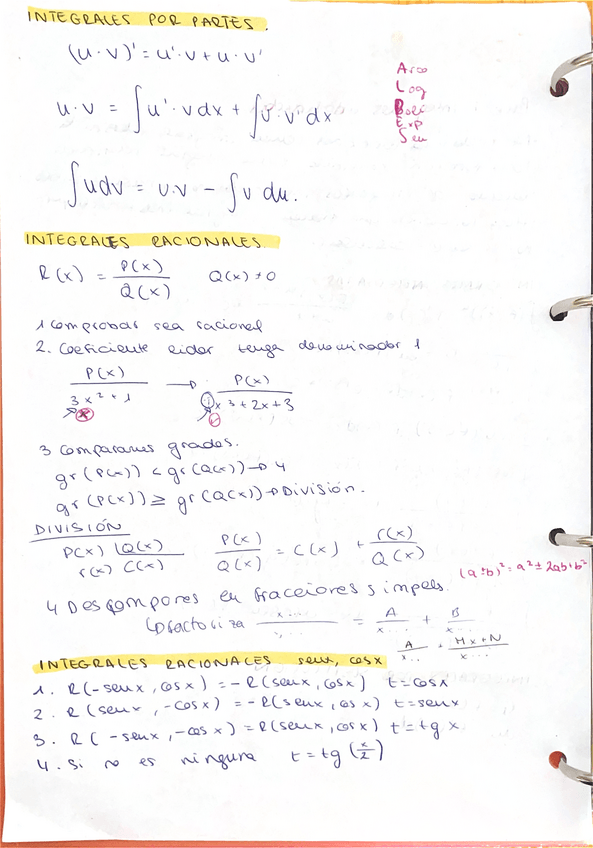 INTEGRALES POR PARTES.
(u·v)' = u'·v + u·v'
Arco
Log
Poli
Exp
Sen
u·v = ∫u'·v dx + ∫u·v' dx
∫u dv = u·v - ∫v du.
INTEGRALES RACIONALES.
R(x) = P(x)/Q(x) Q(x) ≠ 0
1 Comprobar sea racional
2. Coeficiente lider tenga denominador 1
P(x)/(3x² + 1) → P(x)/(1x³ + 2x + 3)
3 Comparamos grados.
gr(P(x)) < gr(Q(x)) → 4
gr(P(x)) ≥ gr(Q(x)) → División.
DIVISIÓN
P(x) |Q(x)
r(x) C(x)
P(x)/Q(x) = C(x) + r(x)/Q(x)
(a±b)² = a² ± 2ab + b²
4 Descompones en fracciones simpels.
factoriza x.../... = A/x... + B/x...
A/x... + Mx+N/x...
INTEGRALES RACIONALES senx, cosx
1. R(-senx, cosx) = -R(senx, cosx) t=cosx
2. R(senx, -cosx) = -R(senx, cosx) t=senx
3. R(-senx, -cosx) = R(senx, cosx) t=tg x
4. Si no es ninguna t=tg(x/2)